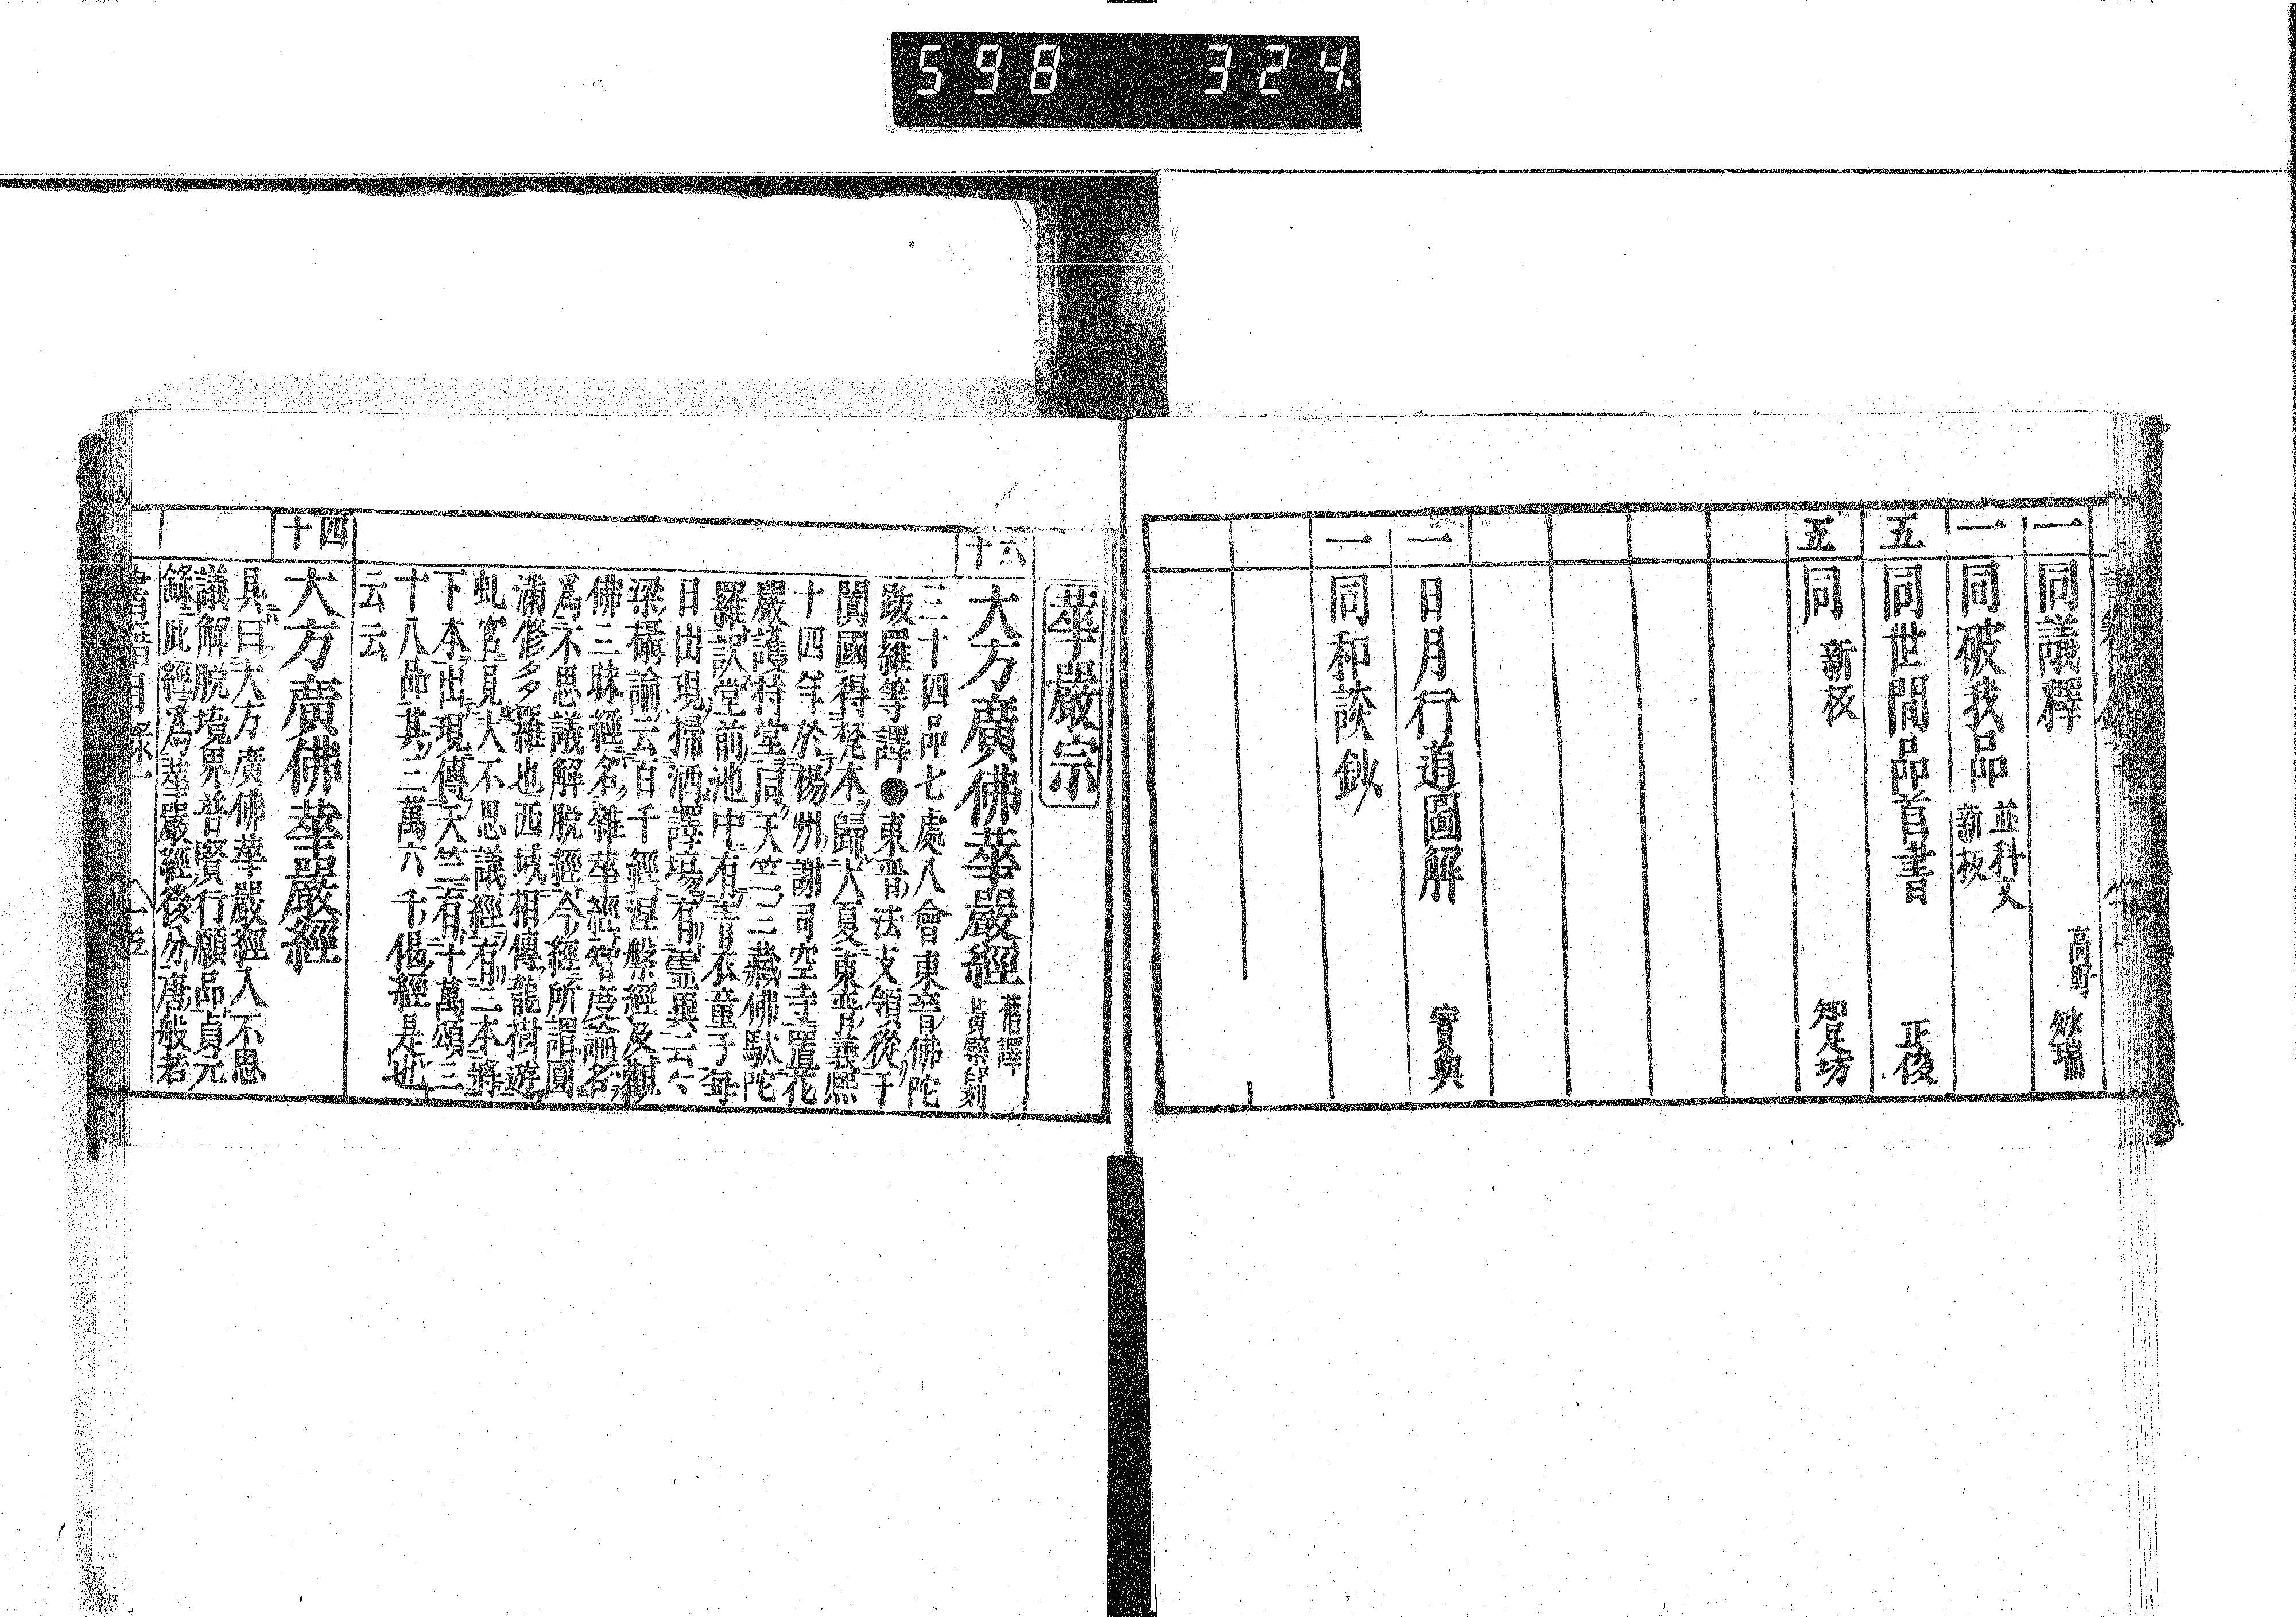 598 324
一 同議釋 高野 妙瑞
一 同破我品 並科文 新板
五 同世間品首書 正後
五 同 新板 知足坊
一 日月行道圖解 實興
一 同和談鈔
華嚴宗
六十 大方廣佛華嚴經 舊譯 黃檗印刻
三十四品七處八會東晉佛陀
跋羅等譯●東晉法支領從于
闐國得梵本歸大夏東晉義熙
十四年於楊州謝司空寺置花
嚴護持堂同天竺三藏佛馱陀
羅訳堂前池中有青衣童子每
日出現掃洒譯場有靈異云々
梁攝論云百千經涅槃經及觀
佛三昧經名雜華經智度論名
爲不思議解脫經今經所謂圓
滿修多羅也西域相傳龍樹遊
虬宮見大不思議經有三本將
下本出現傳天竺有十萬頌三
十八品其三萬六千偈經是也
云云
四十 大方廣佛華嚴經
具曰大方廣佛華嚴經入不思
議解脫境界普賢行願品貞元
錄此經爲華嚴經後分唐般若
書籍目錄一 八十五